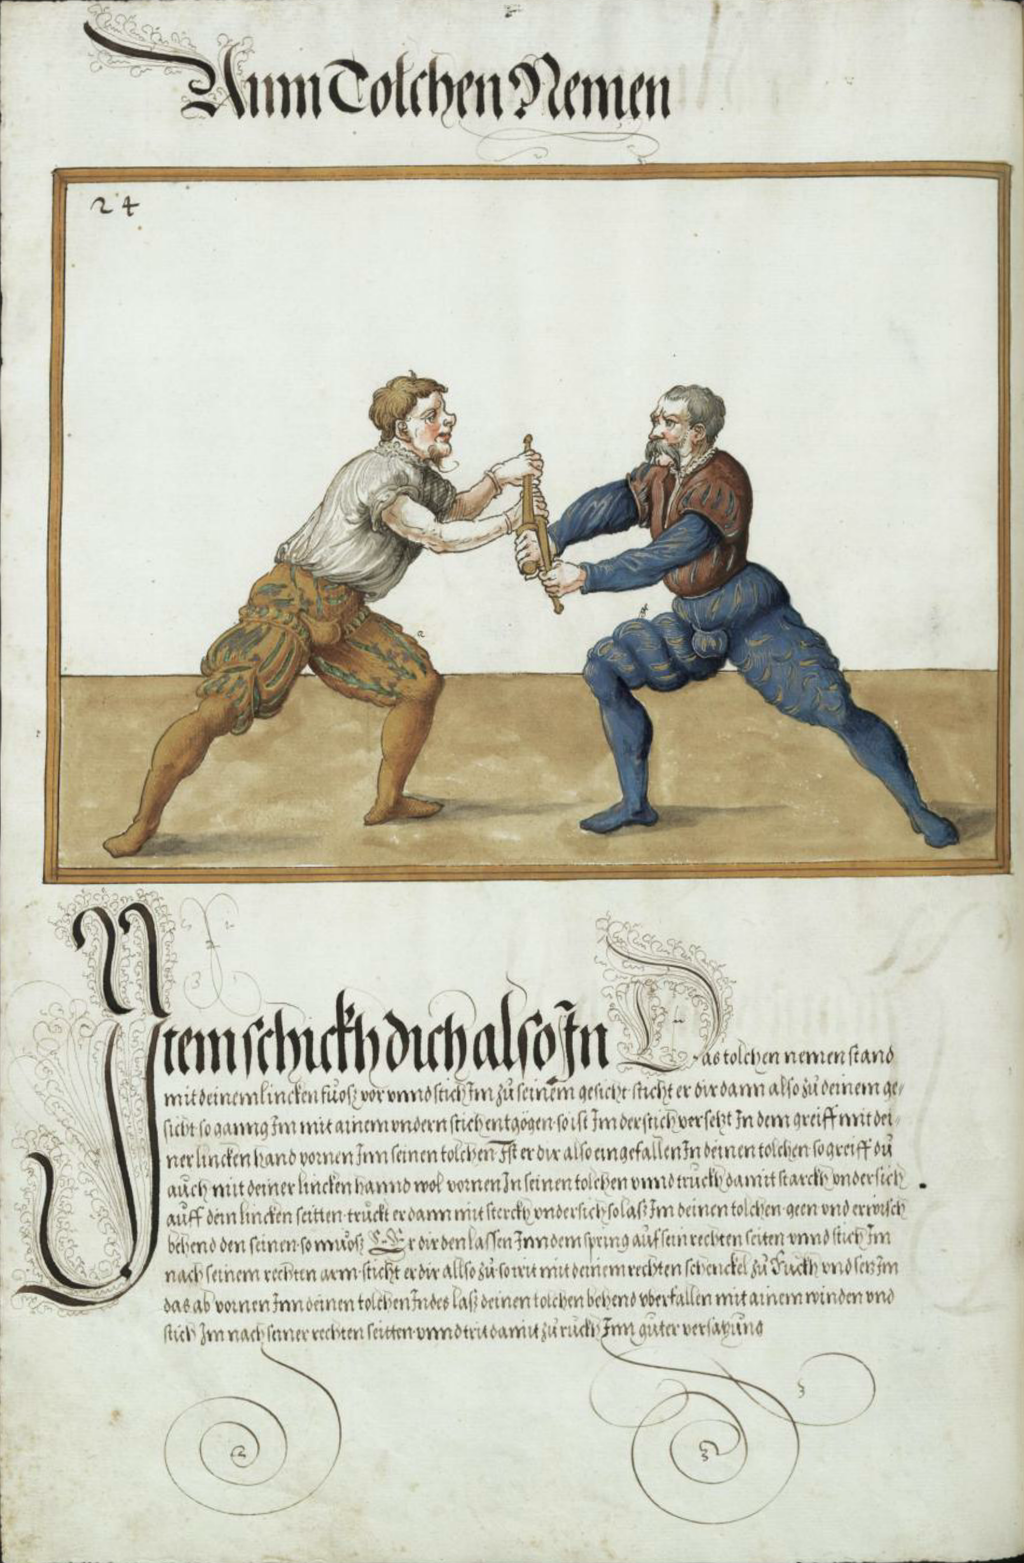 Aum Tolchen Nemen
24
Item schickh dich also In Das tolchen nemen stand
mit deinem lincken fuosz vor vnnd stich Im zů seinem gesicht sticht er dir dann also zů deinem ge-
sicht so ganng Im mit ainem vndern stich entgögen so ist Im der stich versetzt In dem greiff mit dei-
ner lincken hand vornen Inn seinen tolchen Ist er dir also eingefallen In deinen tolchen so greiff dů
auch mit deiner lincken hannd wol vornen In seinen tolchen vnnd truckh damit starckh vndersich
auff dein lincken seitten truckt er dann mit sterckh vndersich so lasz Im deinen tolchen geen vnd erwisch
behend den seinen so muosz Er dir den lassen Inn dem spring auf sein rechten seiten vnnd stich Im
nach seinem rechten arm sticht er dir allso zů so trit mit deinem rechten schenckel zů Ruckh vnd setz Im
das ab vornen Inn deinen tolchen Indes lasz deinen tolchen behend vberfallen mit ainem winden vnd
stich Im nach seiner rechten seitten vnnd trit damit zů ruckh Inn guter versatzung